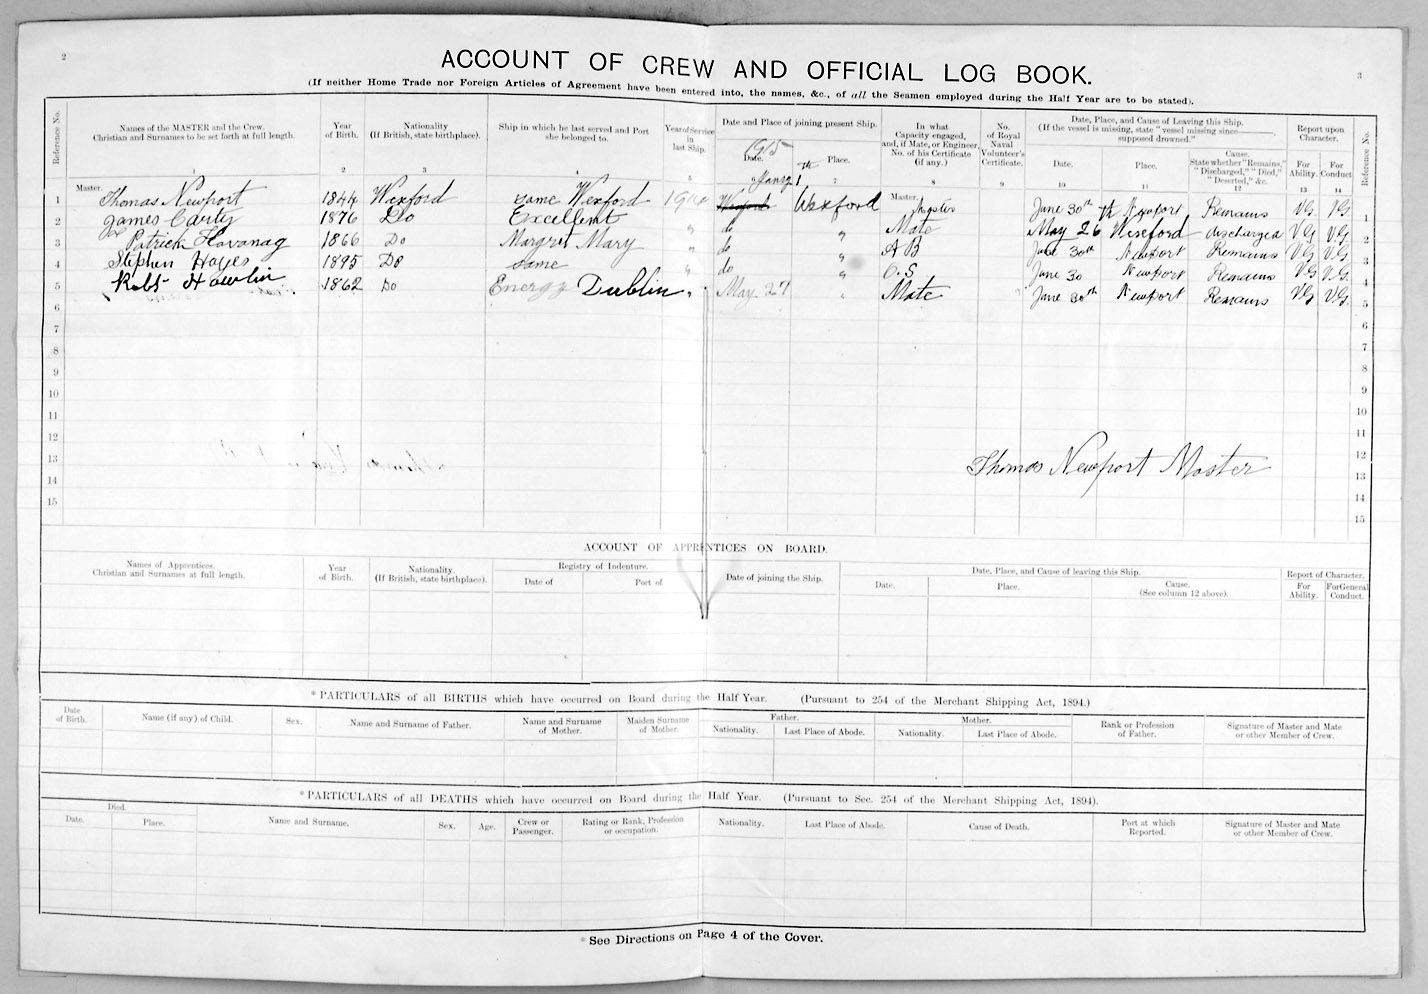 2
3
ACCOUNT OF CREW AND OFFICIAL LOG BOOK.
(If neither Home Trade nor Foreign Articles of Agreement have been entered into, the names, &c., of all the Seamen employed during the Half Year are to be stated).
Reference No. Names of the MASTER and the Crew. Christian and Surnames to be set forth at full length. Year of Birth. Nationality (If British, state birthplace). Ship in which he last served and Port she belonged to. Year of Service in last Ship. Date and Place of joining present Ship. In what Capacity engaged, and, if Mate, or Engineer, No. of his Certificate (if any.) No. of Royal Naval Volunteer's Certificate. Date, Place, and Cause of Leaving this Ship. (If the vessel is missing, state "vessel missing since ———, supposed drowned." Report upon Character. Reference No.
1915
Date. Place. Date. Place. Cause. State whether "Remains," "Discharged," "Died," "Deserted," &c. For Ability. For Conduct
1 2 3 4 5 6 7 8 9 10 11 12 13 14
1 Master. Thomas Newport 1844 Wexford same Wexford 1914 Wexford Master. Master June 30th Newport Remains VG VG 1
2 James Carty 1876 Do Excellent " do " Mate May 26th Wexford discharged VG VG 2
3 Patrick Kavanag 1866 Do Margret Mary " do " A B June 30th Newport Remains VG VG 3
4 Stephen Hayes 1895 Do same " do " O.S June 30 Newport Remains VG VG 4
5 Robt Howlin 1862 Do Energy Dublin " May 27 " Mate June 30th Newport Remains VG VG 5
6 6
7 7
8 8
9 9
10 10
11 11
12 12
13 Thomas Newport Master 13
14 14
15 15
ACCOUNT OF APPRENTICES ON BOARD.
Names of Apprentices. Christian and Surnames at full length. Year of Birth. Nationality. (If British, state birthplace). Registry of Indenture. Date of joining the Ship. Date, Place, and Cause of leaving this Ship. Report of Character.
Date of Port of Date. Place. Cause. (See column 12 above). For Ability. For General Conduct.
*PARTICULARS of all BIRTHS which have occurred on Board during the Half Year. (Pursuant to 254 of the Merchant Shipping Act, 1894.)
Date of Birth. Name (if any) of Child. Sex. Name and Surname of Father. Name and Surname of Mother. Maiden Surname of Mother. Father. Mother. Rank or Profession of Father. Signature of Master and Mate or other Member of Crew.
Nationality. Last Place of Abode. Nationality. Last Place of Abode.
*PARTICULARS of all DEATHS which have occurred on Board during the Half Year. (Pursuant to Sec. 254 of the Merchant Shipping Act, 1894).
Died.
Date. Place. Name and Surname. Sex. Age. Crew or Passenger. Rating or Rank, Profession or occupation. Nationality. Last Place of Abode. Cause of Death. Port at which Reported. Signature of Master and Mate or other Member of Crew.
*See Directions on Page 4 of the Cover.